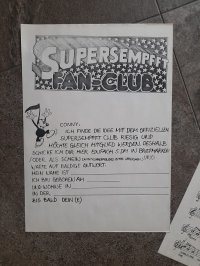 SUPERSEMPFFT
FAN-CLUB
CONNY,
ICH FINDE DIE IDEE MIT DEM OFFIZIELLEN
SUPERSEMPFFT CLUB RIESIG UND
MÖCHTE GLEICH MITGLIED WERDEN. DESHALB
SCHICKE ICH DIR HIER EINFACH 5 DM IN BRIEFMARKEN
(ODER ALS SCHEIN) UND
WARTE AUF BALDIGE ANTWORT.
MEIN NAME IST
ICH BIN GEBOREN AM
UND WOHNE IN
IN DER
BIS BALD DEIN (E)